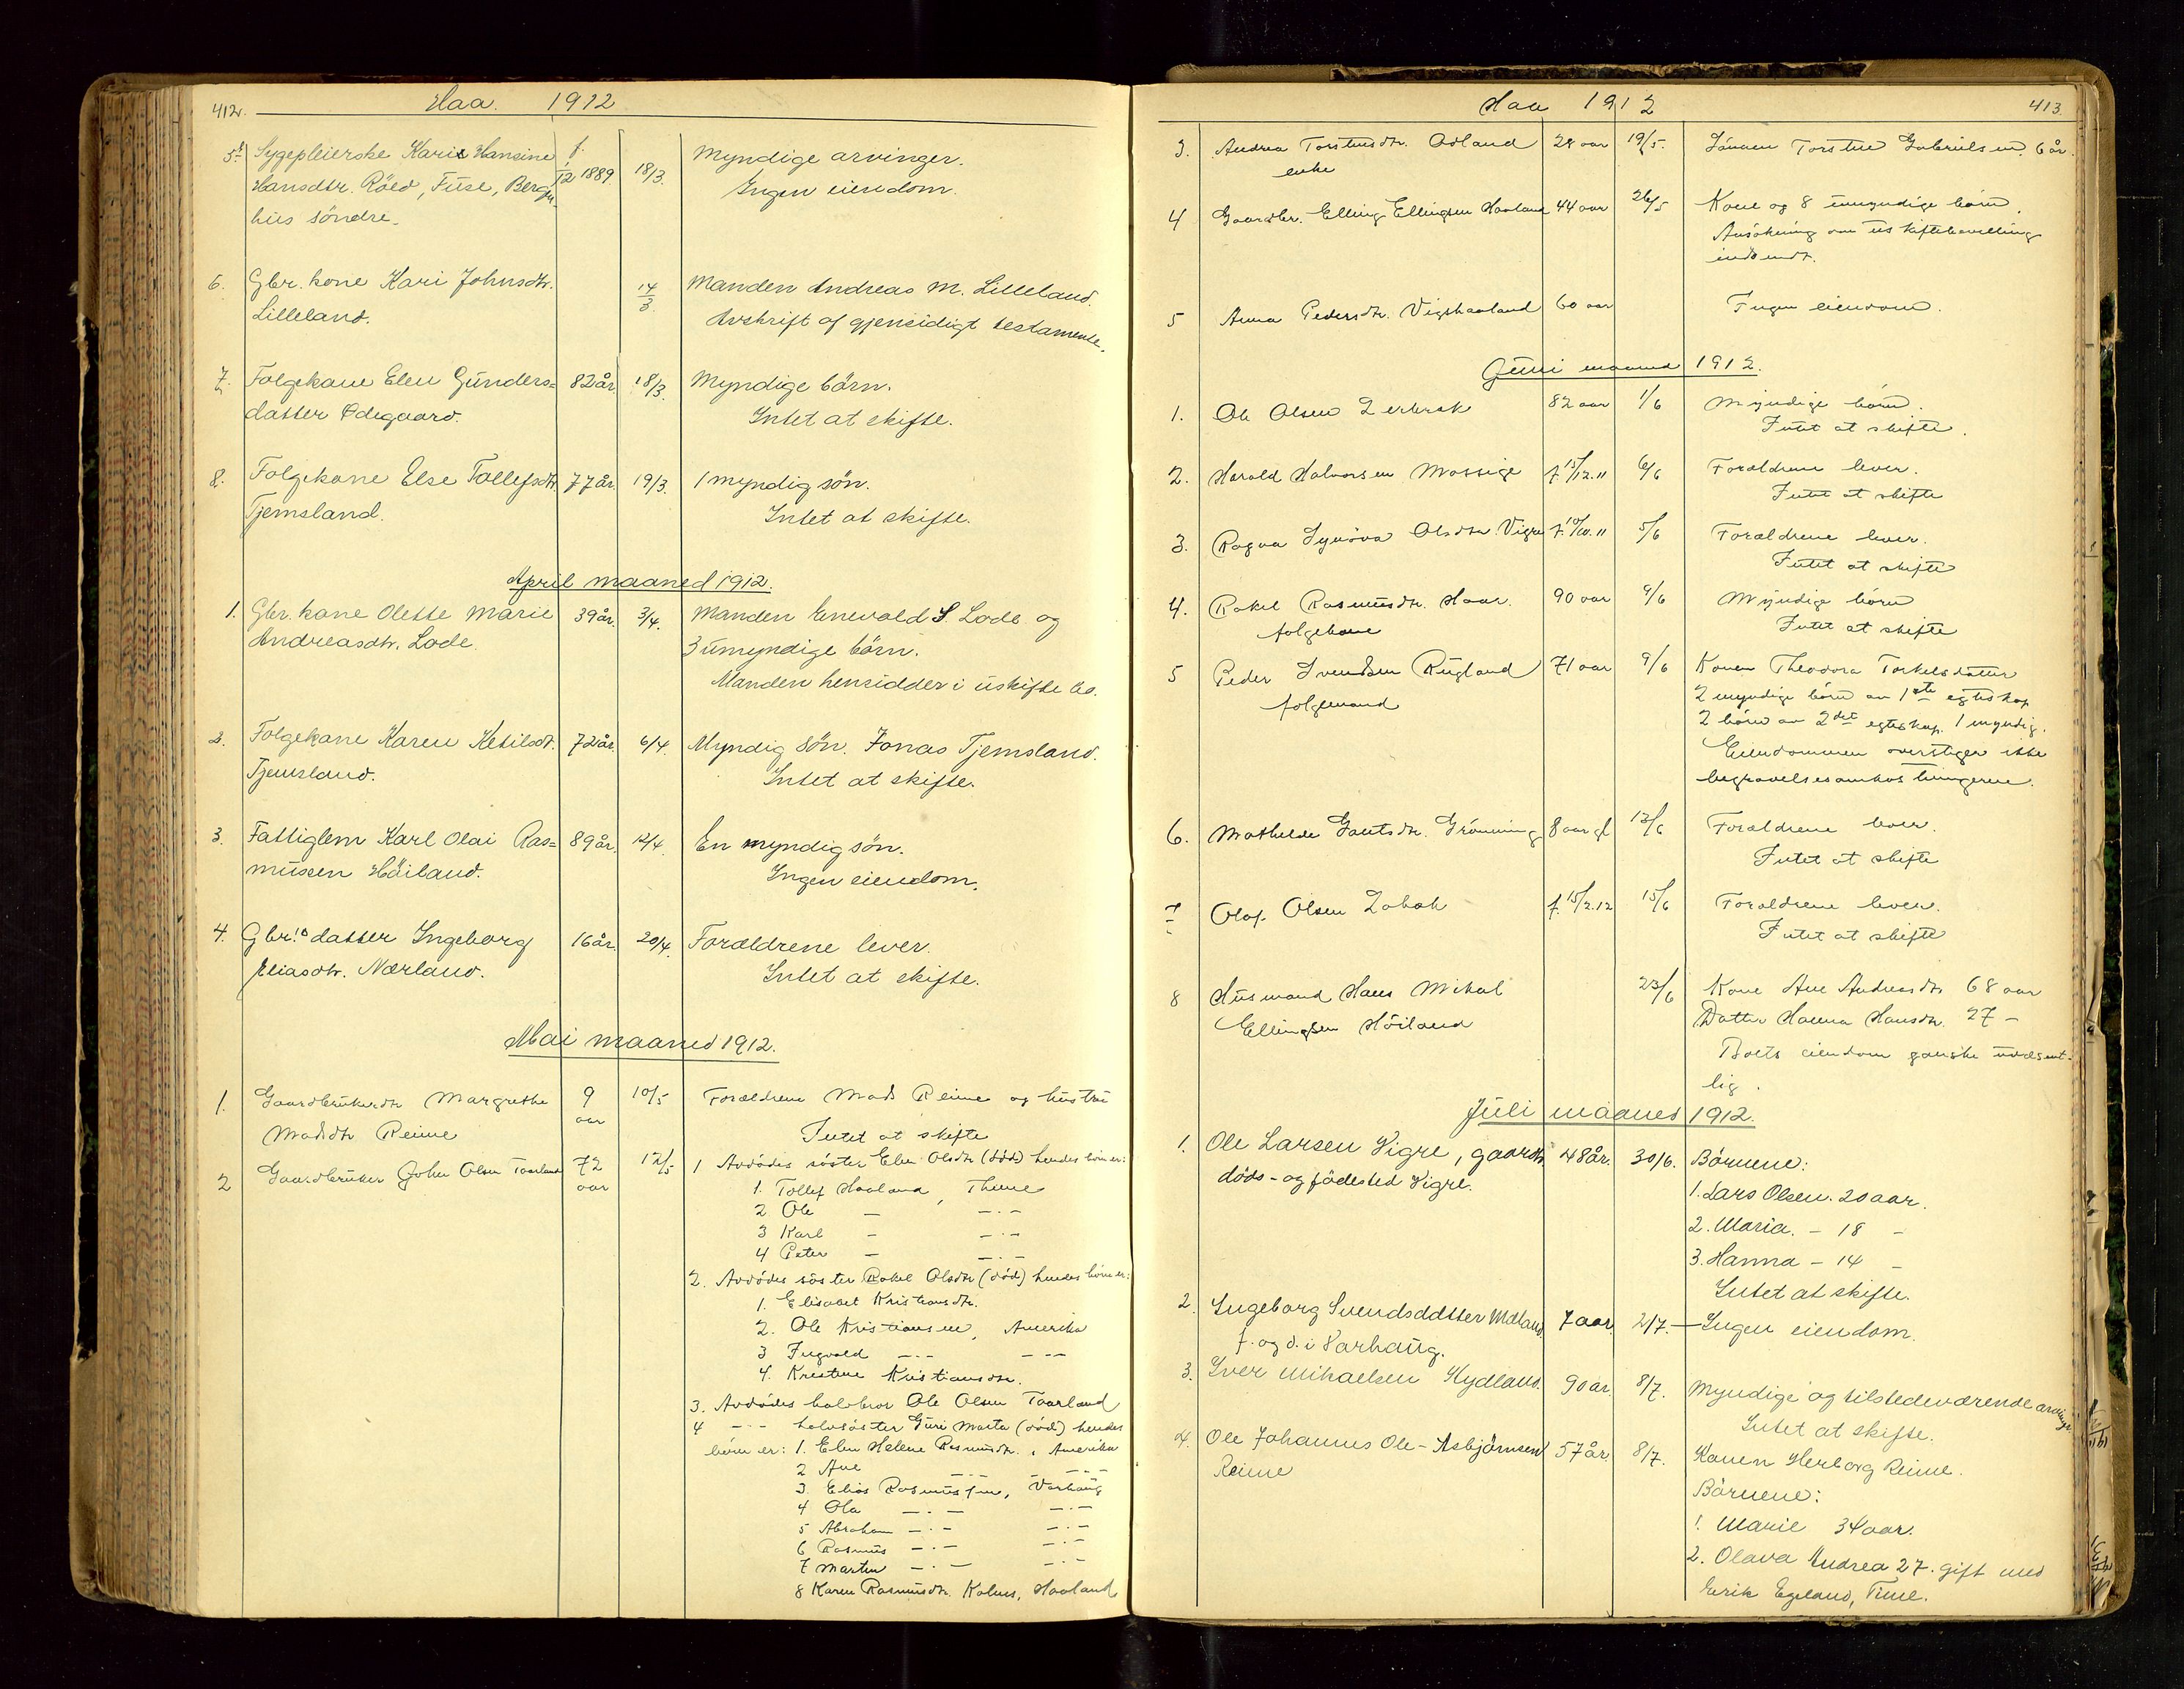 412. Haa. 1912
5. Sygepleierske Karie Hansine f. 1/12 1889. 18/3. Myndige arvinger.
Hansdtr. Röed, Fuse, Bergen- Ingen eiendom.
hus söndre.
6. Gbr. kone Kari Johnsdtr. 14/3 Manden Andreas M. Lilleland.
Lilleland. Avskrift af gjensidigt testamente.
7. Folgekone Elen Gunders= 82 år. 18/3. Myndige börn.
datter Ödegaard. Intet at skifte.
8. Folgekone Else Tollefsdtr. 77 år. 19/3. 1 myndig sön.
Tjemsland. Intet at skifte.
April maaned 1912.
1. Gbr. kone Olette Marie 39 år. 3/4. Manden Enevald S. Lode og
Andreasdtr. Lode. 3 umyndige börn.
Manden hensidder i uskifte bo.
2. Folgekone Karen Ketilsdt. 72 år. 6/4. Myndig sön. Jonas Tjemsland.
Tjemsland. Intet at skifte.
3. Fattiglem Karl Olai Ras= 89 år. 12/4. En myndig sön.
mussen Höiland. Ingen eiendom.
4. Gbr. datter Ingeborg 16 år. 20/4. Forældrene lever.
Eliasdtr. Nærland. Intet at skifte.
Mai maaned 1912.
1. Gaardbrukerdtr Margrethe 9 10/5 Forældrene Mads Reime og hustru
Madsdtr Reime aar Intet at skifte
2 Gaardbruker John Olsen Taarland 72 12/5 1 Avdödes söster Elen Olsdtr (död) hendes börn er:
aar 1. Tollef Haaland, Thime
2 Ole — —.—
3 Karl — —.—
4 Peter — —.—
2. Avdödes söster Rakel Olsdtr (död) hendes börn er:
1. Elisabet Kristiansdtr.
2. Ole Kristiansen, Amerika
3 Ingvald —.— —.—
4. Kristine Kristiansdtr.
3. Avdödes halvbror Ole Olsen Taarland
4 —.— halvsöster Guri Marta (död) hendes
börn er: 1. Elen Helene Rasmusdtr. i Amerika
2 Ane —.— —.—
3. Elias Rasmussen, Varhaug
4 Ola —.— —.—
5 Abraham —.— —.—
6 Rasmus —.— —.—
7 Martin —.— —.—
8 Karen Rasmusdtr. Haaland
Haa 1912 413
3. Andrea Torstensdtr. Odland 28 aar 19/5. Sönnen Torsten Gabrielsen. 6 år.
enke
4 Gaardbr. Elling Ellingsen Haaland 44 aar 26/5 Kone og 8 umyndige börn.
Ansökning om uskiftebevilling
indsendt.
5 Anna Pedersdtr. Vigshaaland 60 aar Ingen eiendom.
Juni maaned 1912.
1. Ole Olsen 82 aar 1/6 Myndige börn.
Intet at skifte.
2. Harald Halvorsen Mossige f. 15/12.11 6/6 Forældrene lever.
Intet at skifte
3. Ragna Synöva Olsdtr. Vigre f. 10/10.11 5/6 Forældrene lever.
Intet at skifte
4. Rakel Rasmusdtr. Haar. 90 aar 9/6 Myndige börn
folgekone Intet at skifte
5 Peder Svendsen Rugland 71 aar 9/6 Konen Theodora Torkelsdatter
folgemand 2 myndige börn av 1ste egteskap
2 börn av 2det egteskap. 1 myndig.
Eiendommen overstiger ikke
begravelsesomkostningerne.
6. Mathilde Gautsdtr. Grönning 8 aar gl 13/6 Forældrene lever.
Intet at skifte
7 Olaf Olsen f. 15/2.12 15/6 Forældrene lever.
Intet at skifte
8 Husmand Hans Mikal 23/6 Kone Ane Andreasdtr 68 aar
Ellingsen Höiland Datter Hanna Hansdtr. 27 —
Boets eiendom ganske uvæsent-
lig.
Juli maaned 1912.
1. Ole Larsen Vigre, gaardbr. 48 år. 30/6. Börnene:
döds- og födested Vigre. 1. Lars Olsen. 20 aar.
2. Maria. — 18 —
3. Hanna — 14 —
Intet at skifte.
2. Ingeborg Svendsdatter Mæland. 7 aar. 2/7. — Ingen eiendom.
f. og d. i Varhaug.
3. Iver Mihaelsen Hydland. 90 ar. 8/7. Myndige og tilstedeværende arvinger.
Intet at skifte.
4. Ole Johannus Ole-Asbjörnsen 57 år. 8/7. Konen Herborg Reime.
Reime Börnene:
1. Marie 34 aar.
2. Olava Andrea 27. gift med
Erik Egeland, Time.